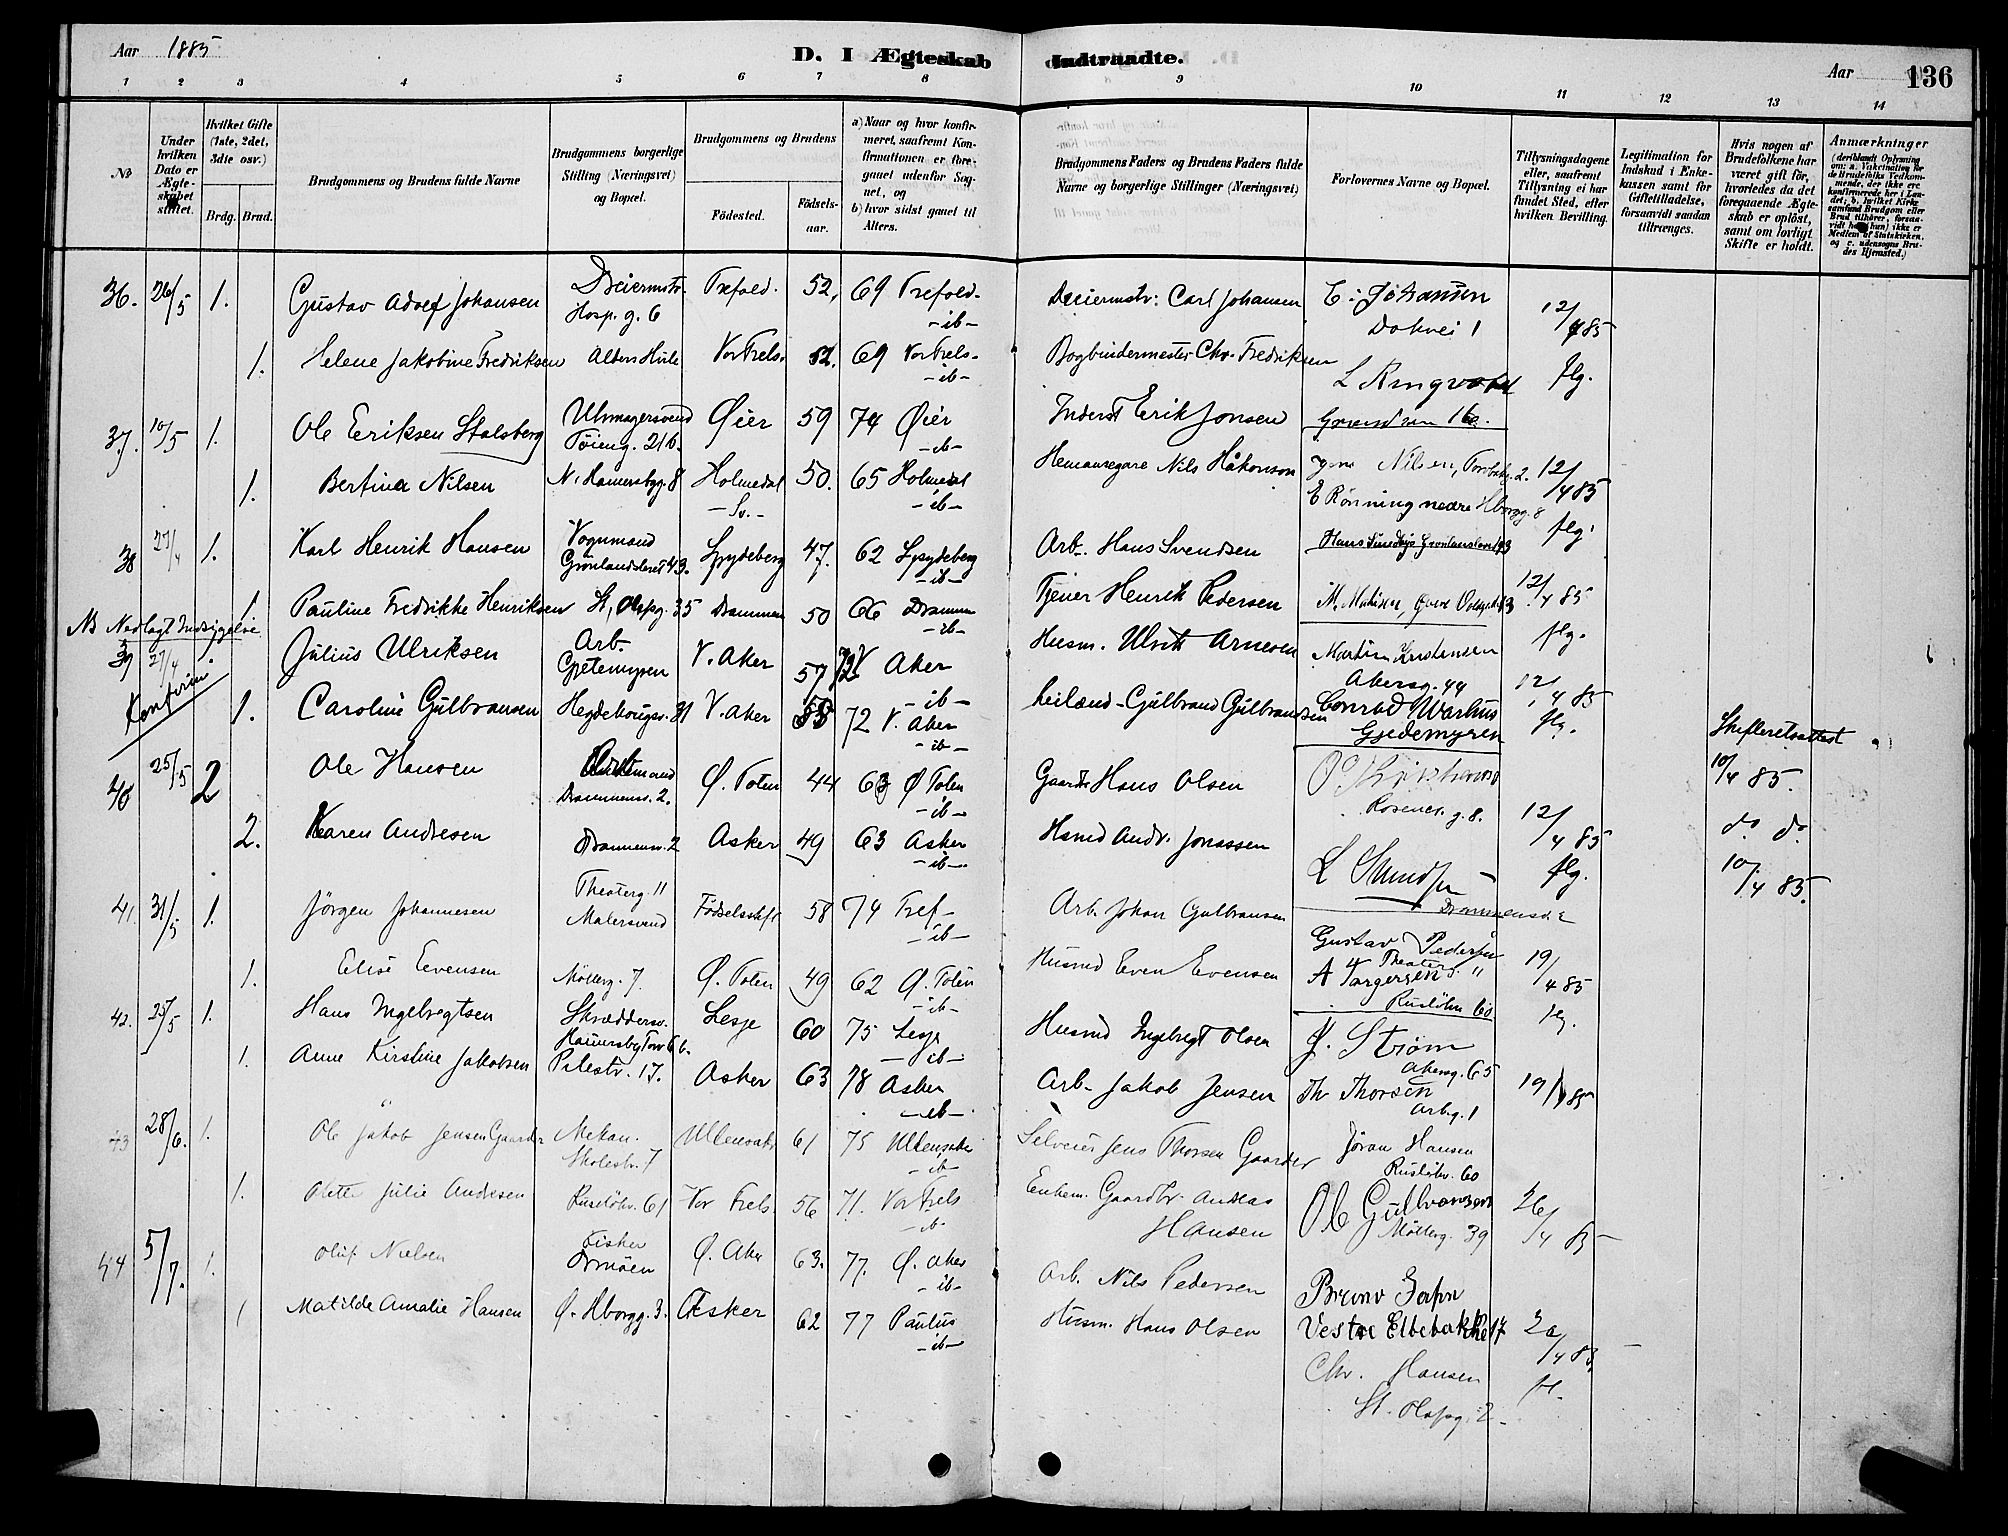 Aar 1885
D. I Ægteskab Indtraadte.
Aar 136
1 2 3 4 5 6 7 8 9 10 11 12 13 14
No
Under hvilken Dato er Ægteskabet stiftet.
Hvilket Gifte (1ste, 2det, 3die osv.)
Brdg. Brud.
Brudgommens og Brudens fulde Navne
Brudgommens borgerlige Stilling (Næringsvei) og Bopæl.
Brudgommens og Brudens
Fødested. Fødselsaar.
a) Naar og hvor konfirmeret, saafremt Konfirmationen er foregaaet udenfor Sognet, og
b) hvor sidst gaaet til Alters.
Brudgommens Faders og Brudens Faders fulde Navne og borgerlige Stillinger (Næringsvei)
Forlovernes Navne og Bopæl.
Tillysningsdagene eller, saafremt Tillysning ei har fundet Sted, efter hvilken Bevilling.
Legitimation for Indskud i Enkekassen samt for Giftetilladelse, forsaavidt saadan tiltrænges.
Hvis nogen af Brudefolkene har været gift før, hvorledes da det foregaaende Ægteskab er opløst, samt om lovligt Skifte er holdt.
Anmærkninger
36. 26/5 1. Gustav Adolf Johansen Dreiermstr. Trefold. 52, 69 Trefold. Dreiermstr: Carl Johansen C. Johansen 12/4 85
Hosp. g. 6 -ib- Dokvei 1
1. Helene Jakobine Fredriksen Vor Frels. 52. 69 Vor Frels. Bogbindermester Chr. Fredriksen L Ringvold flg.
-ib-
37. 10/5 1. Ole Eriksen Stalsberg Uhrmagersvend Øier 59 74 Øier Inderst Erik Jonsen 16
Tøieng. 21b. -ib-
1. Bertine Nilsen N. Hamersbgg. 8 Holmedal 50. 65 Holmedal Nils Håkonson Nilsen, 2. 12/4 85
-Sv.- -ib- E Rönning nedre Hborgg. 8 flg.
38 27/4 1. Karl Henrik Hansen Vognmand Spydeberg 47. 62 Spydeberg Arb. Hans Svendsen
Grönlandsleret 43. -ib-
1 Pauline Fredrikke Henriksen St. Olafsg. 35 Drammen 50 66 Drammen Tjener Henrik Pedersen 12/4 85
NB Nedlagt Indsigelse -ib- flg.
39 27/4 Julius Ulriksen Arb. V. Aker 57 72 V Aker Husm. Ulrik Arnesen Martin Kristensen
Gjetemyren -ib- Akersg. 44
1. Caroline Gulbransen Hegdehougsv. 31 V. Aker 58 72 V. Aker Leilænd. Gulbrand Gulbrandsen Conrad Warhus 12/4 85
-ib- Gjedemyren flg.
Skifteretsattest
40 25/5 2 Ole Hansen Ø. Toten 44 63 Ø Toten Gaardbr Hans Olsen 10/4 85.
Drammensv. 2. -ib- Rosenkr. g. 8. 12/4 85
2. Karen Andresen Drammensv. 2 Asker 49 63 Asker Husmd Andr. Jonassen do. do.
-ib- flg. 10/4 85.
41. 31/5 1. Jörgen Johannesen Theaterg. 11 Fødselsstift 58 74 Tref- Arb. Johan Gulbransen
Malersvend -ib- Gustav Pedersen
1. Elise Evensen Mölleg. 7. Ø. Toten 49 62 Ø. Toten Husmd Even Evensen A Torgersen 19/4 85
-ib- Ruslökv. 60 flg.
42. 25/5 1. Hans Ingebregtsen Skrædders. Lesje 60 75 Lesje Husmd Ingebregt Olsen J. Ström
Hamersbg Torv 6b. -ib- Akersg. 65
1. Anne Kirstine Jakobsen Pilestr. 17. Asker 63 78 Asker Arb. Jakob Jensen Th Thorsen 19/4 85
-ib- Arbg. 1
43 28/6. 1. Ole Jakob Jensen Gaarder Mekan. Ullensaker 61 75 Ullensaker Selveier Jens Thorsen Gaarder Jöran Hansen
Skolestr. 7 -ib- Ruslökv. 60
1. Julie Andresen Ruselökv. 61 Vor Frels 56 71. Vor Frels Gaardbr. Andreas Hansen Ole Gulbransen 26/4 85
-ib- Mölleg. 39
44 5/7. 1. Oluf Nielsen Fisker Ø. Aker 63. 77. Ø. Aker Arb. Nils Pedersen Bruno
Ormöen -ib-
1 Matilde Amalie Hansen Ø. Hborgg. 3. Asker 62 77 Paulus Husm. Hans Olsen Vestre Elvebakke 17
-ib- Chr. Hansen
St. Olafsg. 2